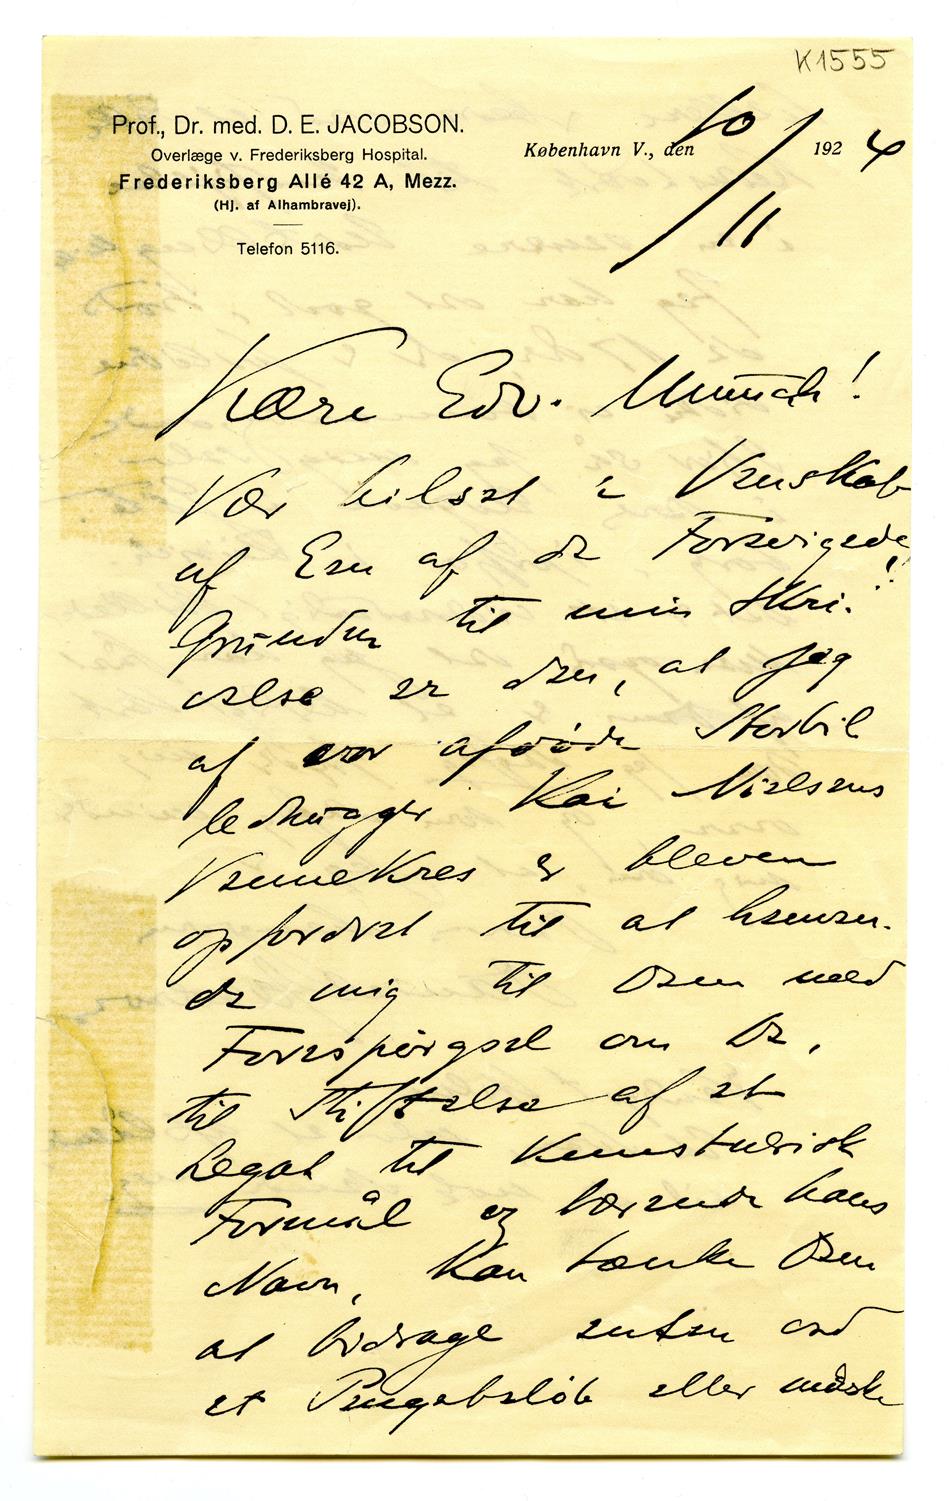 K1555
Prof., Dr. med. D. E. JACOBSON.
Overlæge v. Frederiksberg Hospital.
Frederiksberg Allé 42 A, Mezz.
(Hj. af Alhambravej).
Telefon 5116.
København V., den 10/11 1924
Kære Edv. Munch!
Vær hilset i Venskab
af Een af de Forevigede!
Grunden til min Skri-
velse er den, at jeg
af vor afdøde Storbil
ledhugger Kai Nielsens
Vennekres er bleven
opfordret til at henven-
de mig til Dem med
Forespørgsel om De,
til Stiftelse af et
Legat til Kunstnerisk
Formål og bærende hans
Navn, kan tænke Dem
at bidrage enten ved
et Pengebeløb eller måske